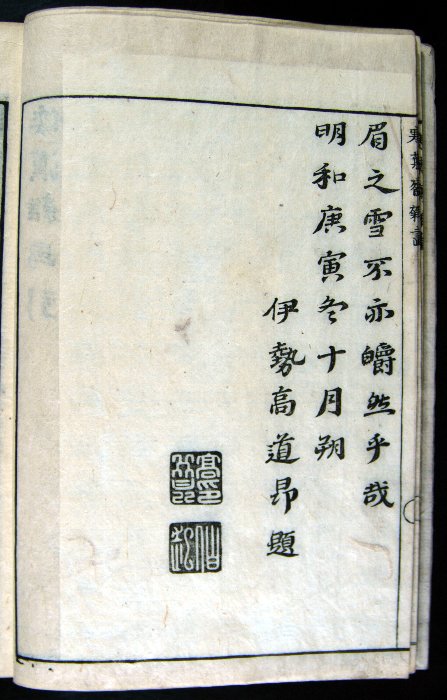 眉之雪不亦皭然乎哉
明和庚寅冬十月朔
伊勢高道昂題